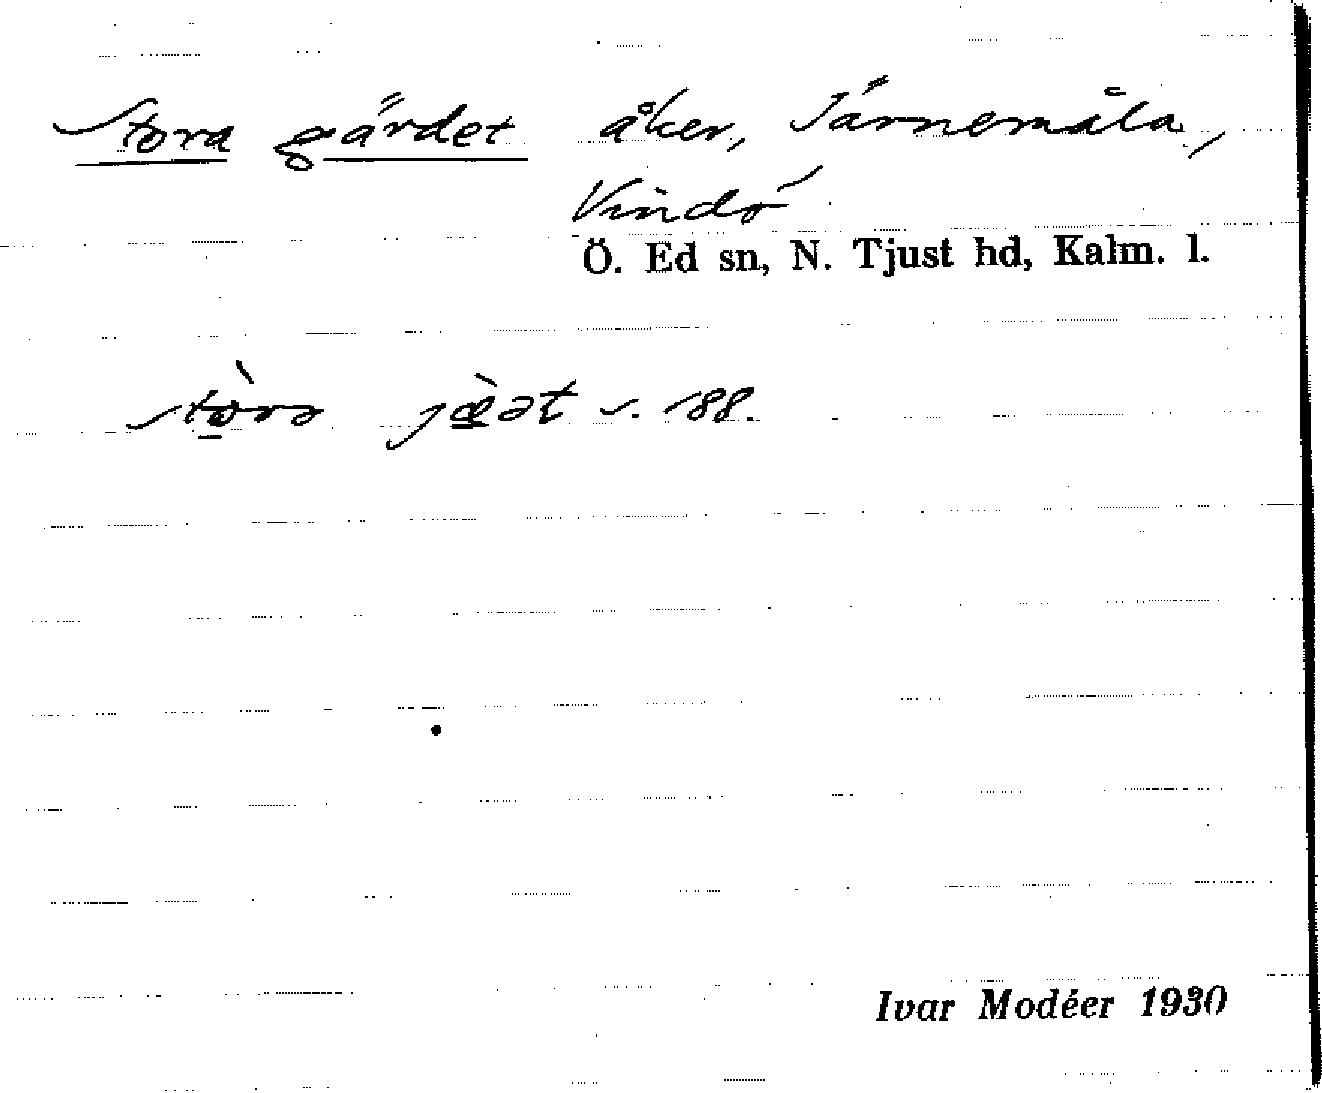 Stora gärdet åker, Järnemåla,
Vindö
Ö. Ed sn, N. Tjust hd, Kalm. l.
s. 188.
Ivar Modéer 1930